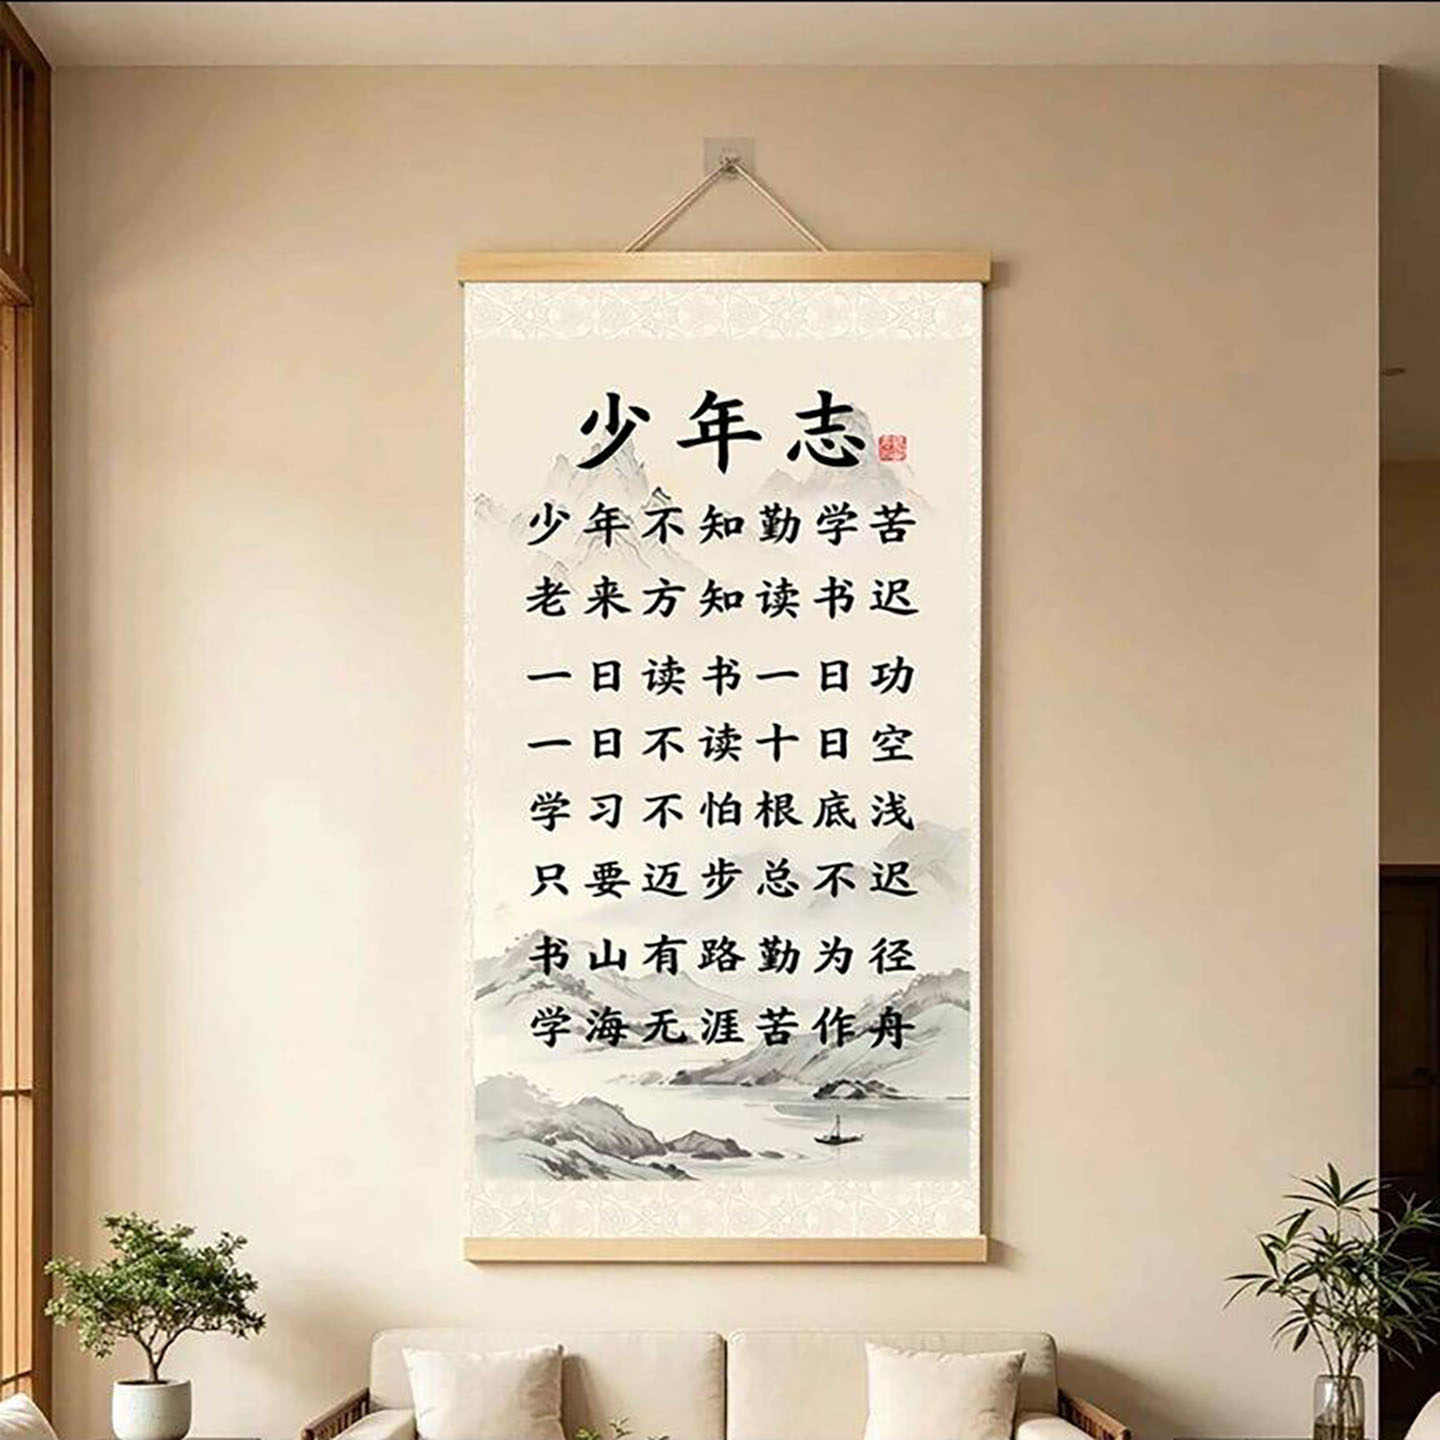 少年志
少年不知勤学苦
老来方知读书迟
一日读书一日功
一日不读十日空
学习不怕根底浅
只要迈步总不迟
书山有路勤为径
学海无涯苦作舟